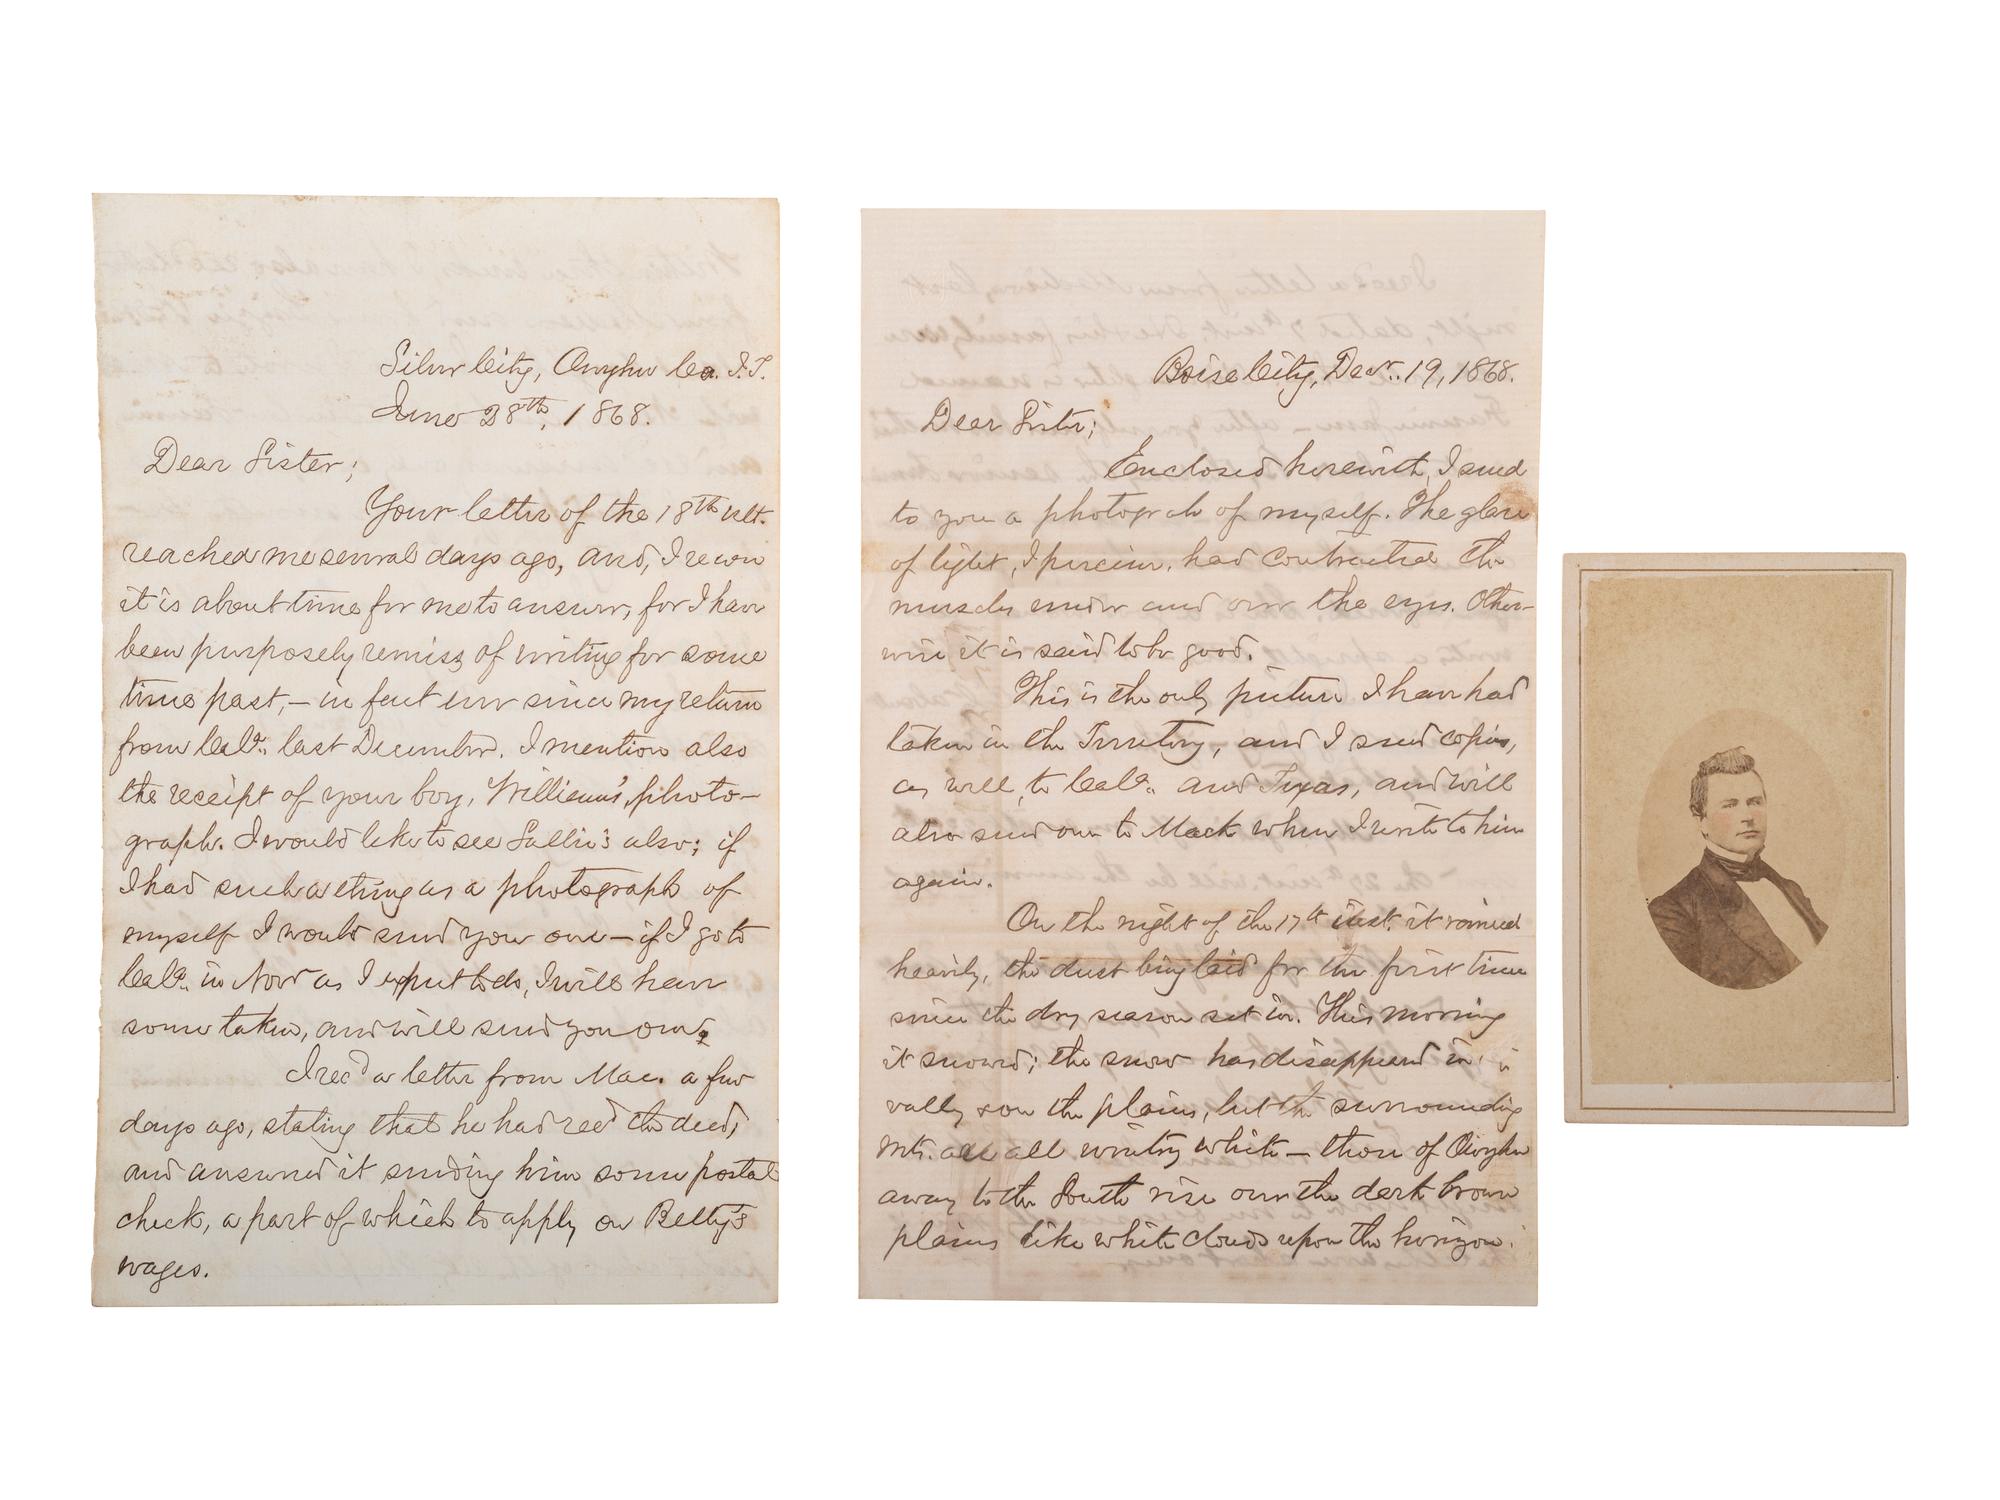 Silver City, Owyhee Co. I.T.
June 28th, 1868.
Dear Sister;
Your letter of the 18th ult.
reached me several days ago, and, I recon
it is about time for me to answer, for I have
been purposely remiss of writing for some
time past, — in fact ever since my return
from Cala. last December. I mention also
the receipt of your boy, William's, photo-
graph. I would like to see Sallie's also; if
I had such a thing as a photograph of
myself I would send you one — if I go to
Cala. in Nov as I expect to do, I will have
some taken, and will send you one.
I rec'd a letter from Mac. a few
days ago, stating that he had recd the deed,
and answered it sending him some postal
check, a part of which to apply on Betty's
wages.
Boise City, Decr. 19, 1868.
Dear Sister;
Enclosed herewith, I send
to you a photograph of myself. The glare
of light, I perceive, had contracted the
muscles under and over the eyes. Other-
wise it is said to be good.
This is the only picture I have had
taken in the Territory, and I send copies,
as well, to Cala. and Texas, and will
also send one to Mack when I write to him
again.
On the night of the 17th inst. it rained
heavily, the dust being laid for the first time
since the dry season set in. This morning
it snowed; the snow has disappeared in
valley &
the plains, but the surrounding
Mts. are all wintry white — those of Owyhee
away to the South rise over the dark brown
plains like white clouds upon the horizon.